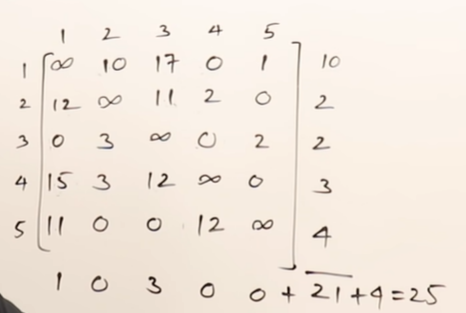 1 2 3 4 5
1 ∞ 10 17 0 1 10
2 12 ∞ 11 2 0 2
3 0 3 ∞ 0 2 2
4 15 3 12 ∞ 0 3
5 11 0 0 12 ∞ 4
1 0 3 0 0 + 21 + 4 = 25